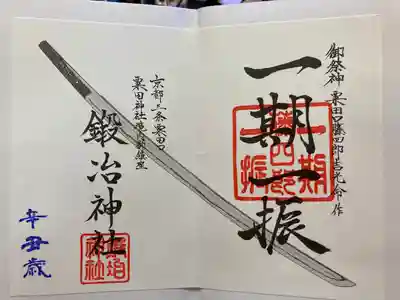 御祭神 粟田口藤四郎吉光命作
一期一振
京都三条粟田口
粟田神社境内鎮座
鍛冶神社
辛丑歳